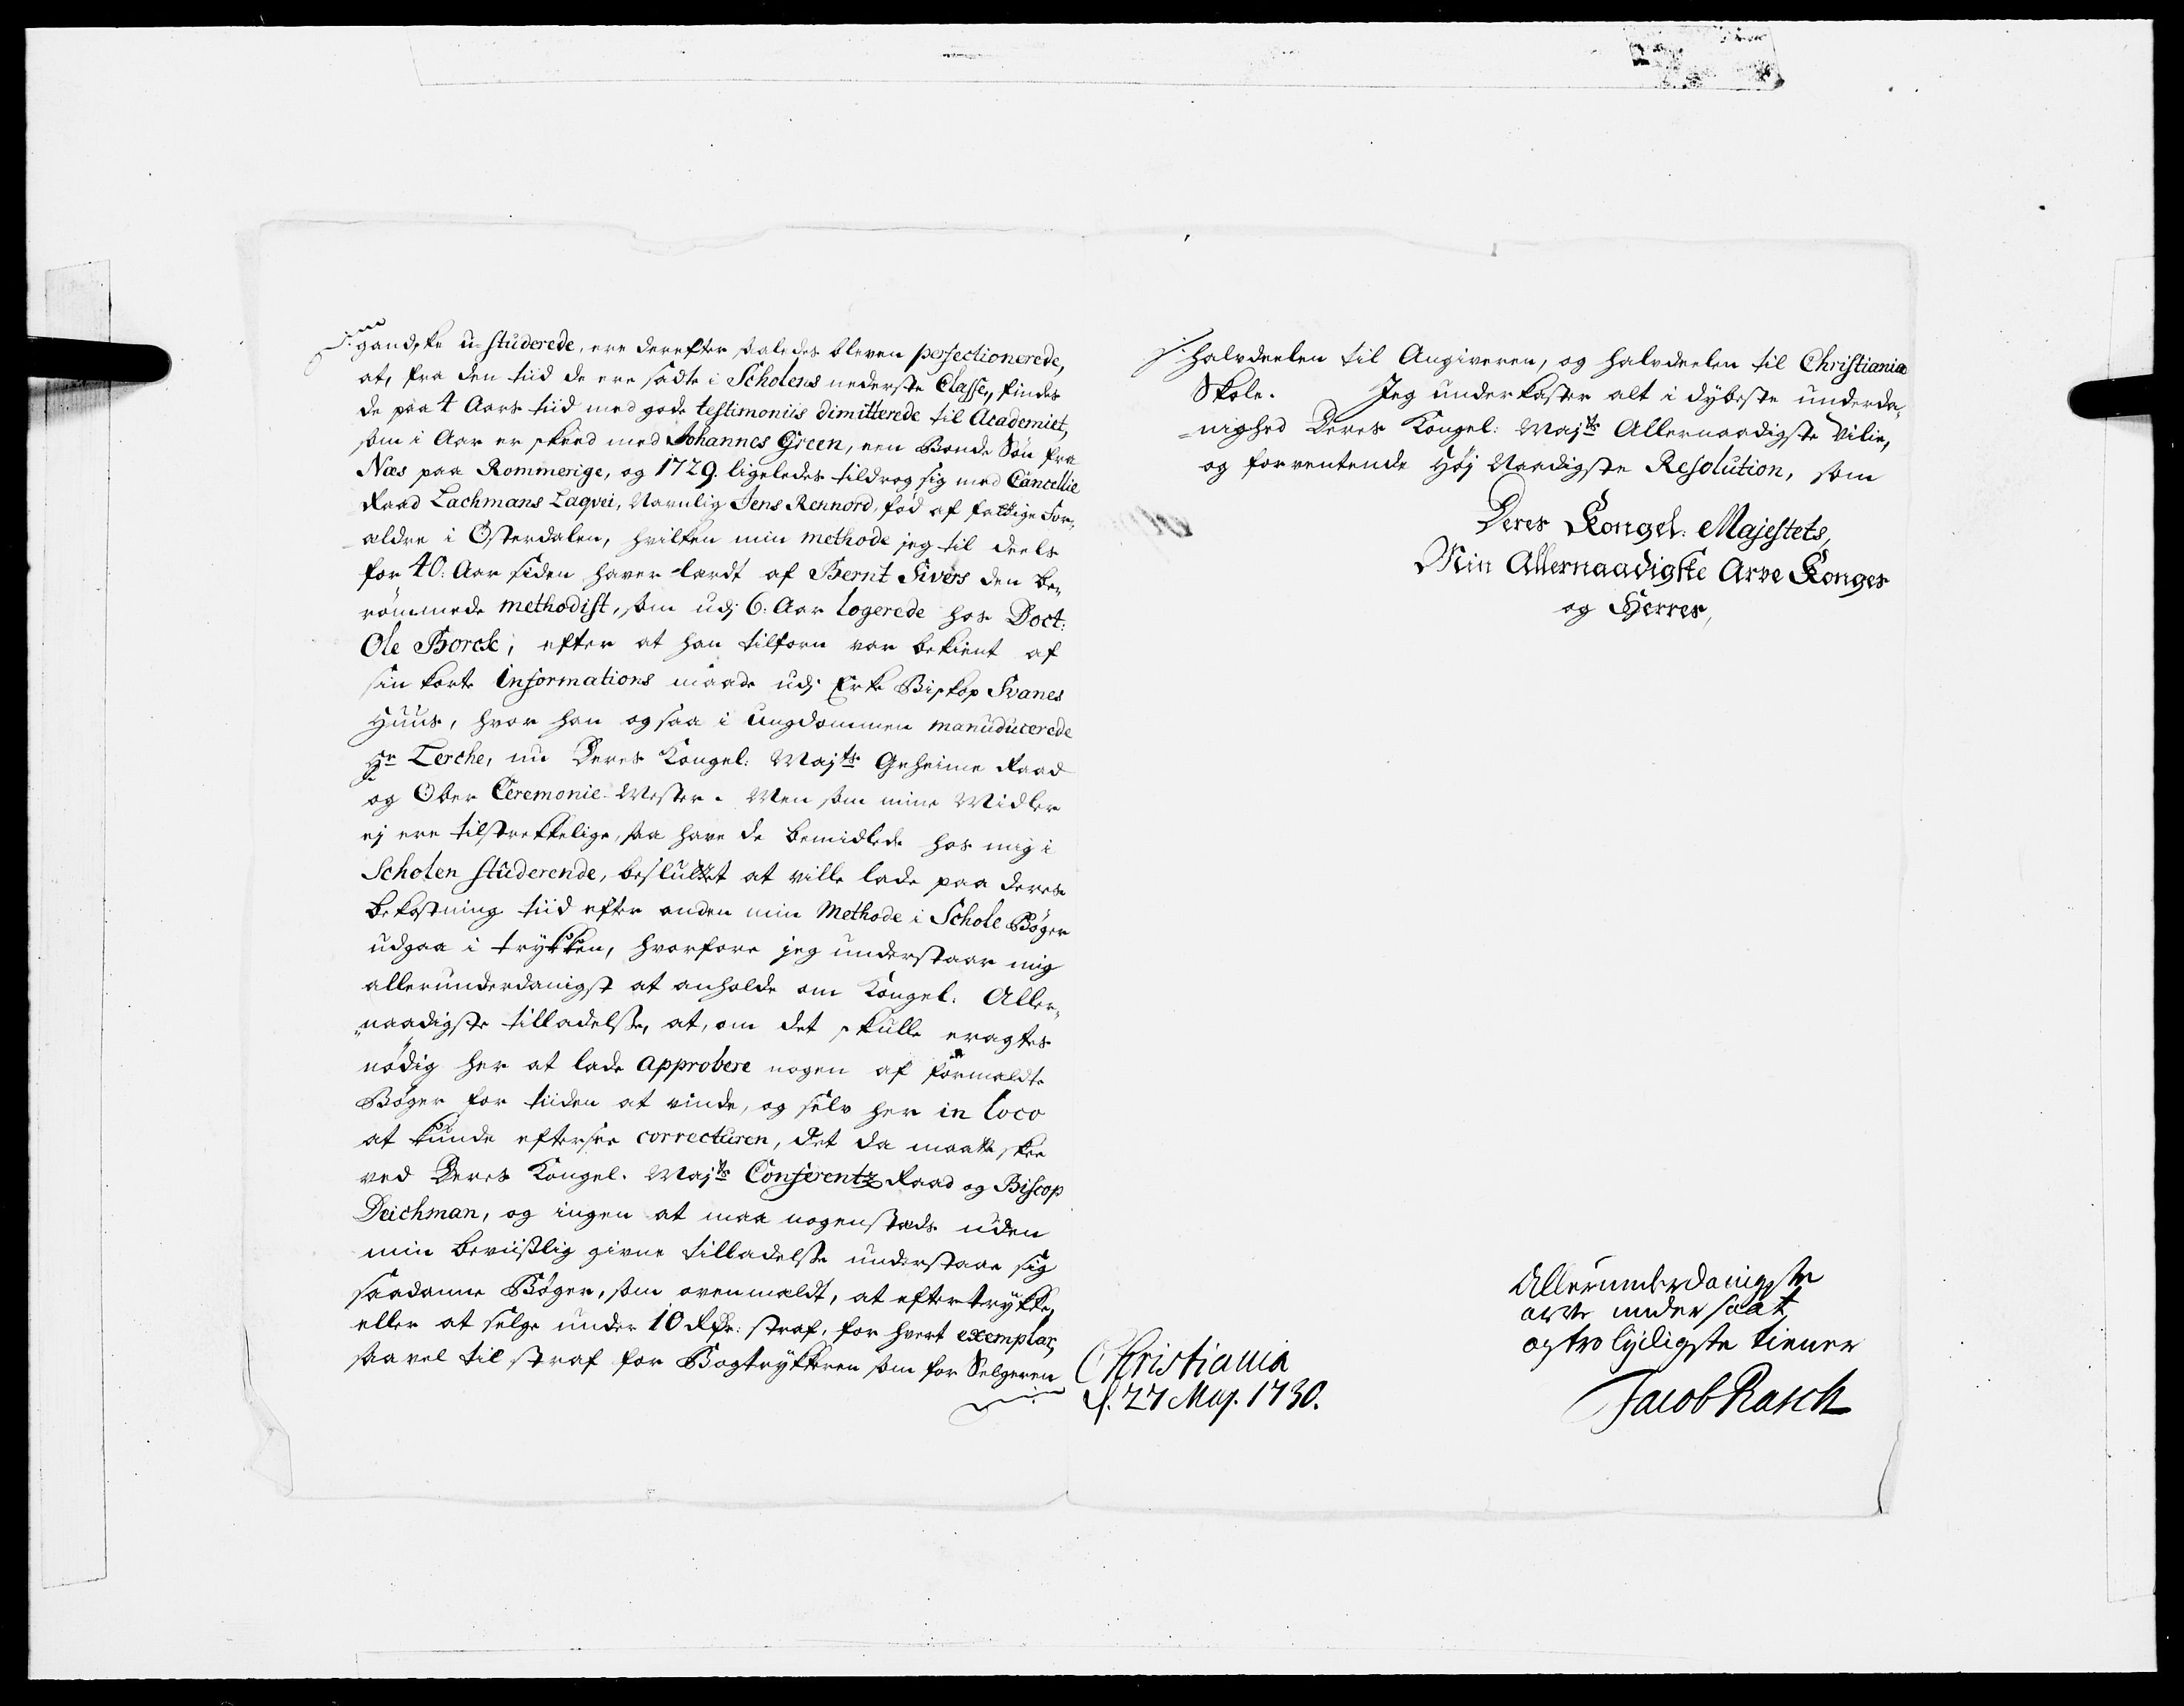 gandske u-studerede, ere derefter saaledes bleven perfectionerede,
at, fra den tiid de ere sadte i Scholens nederste Classe, findes
de paa 4 Aars tiid med gode testimoniis dimitterede til Academiet,
som i Aar er skeed med Johannes Green, een Bonde Søn fra
Næs paa Rommerige, og 1729. ligeledes tildrog sig med Cancellie
Raad Lachmans Laqvei, Navnlig Jens Rennord, fød af fattige For-
ældre i Østerdalen, hvilken min methode jeg til deels
for 40: Aar siden haver lærdt af Bernt Sivers den be-
rømmede methodist, som udj 6: Aar logerede hos Doct:
Ole Borck, efter at han tilforn var bekient af
sin korte Informations maade udj Erke Biskop Svanes
Huus, hvor han ogsaa i Ungdommen manuducerede
Hr Lerche, nu Deres Kongel: Majts Geheime Raad
og Ober Ceremonie-Mester. Men som mine Midler
ej ere tilstrekkelige, saa have de bemidlede hos mig i
Scholen studerende, besluttet at ville lade paa deres
bekostning tiid efter anden min Methode i Schole Bøger
udgaa i trykken, hvorfore jeg understaar mig
allerunderdanigst at anholde om Kongel: Aller-
naadigste tilladelse, at, om det skulle eragtes
nødig her at lade approbere nogen af formældte
Bøger for tiiden at vinde, og selv her in loco
at kunde eftersee correcturen, det da maatte skee
ved Deres Kongel. Majts Conferentz Raad og Biscop
Deichman, og ingen at maa nogenstæds uden
min beviislig givne tilladelse understaae sig
saadanne Bøger, som ovenmældt, at eftertrykke,
eller at selge under 10 Rdr: straf, for hvert exemplar,
saavel til straf for Bogtrykkeren som for Selgeren
halvdeelen til Angiveren, og halvdeelen til Christiania
Skole. Jeg underkaster alt i dybeste underda-
nighed Deres Kongel: Majts Allernaadigste Vilie,
og forventende Høj Naadigste Resolution, som
Deres Kongel. Majestets,
Min Allernaadigste Arve Konges
og Herres,
Allerunderdanigste
arve undersaat
og tro lydigste tiener
Jacob Rasch
Christiania
d. 27 Maj. 1730.